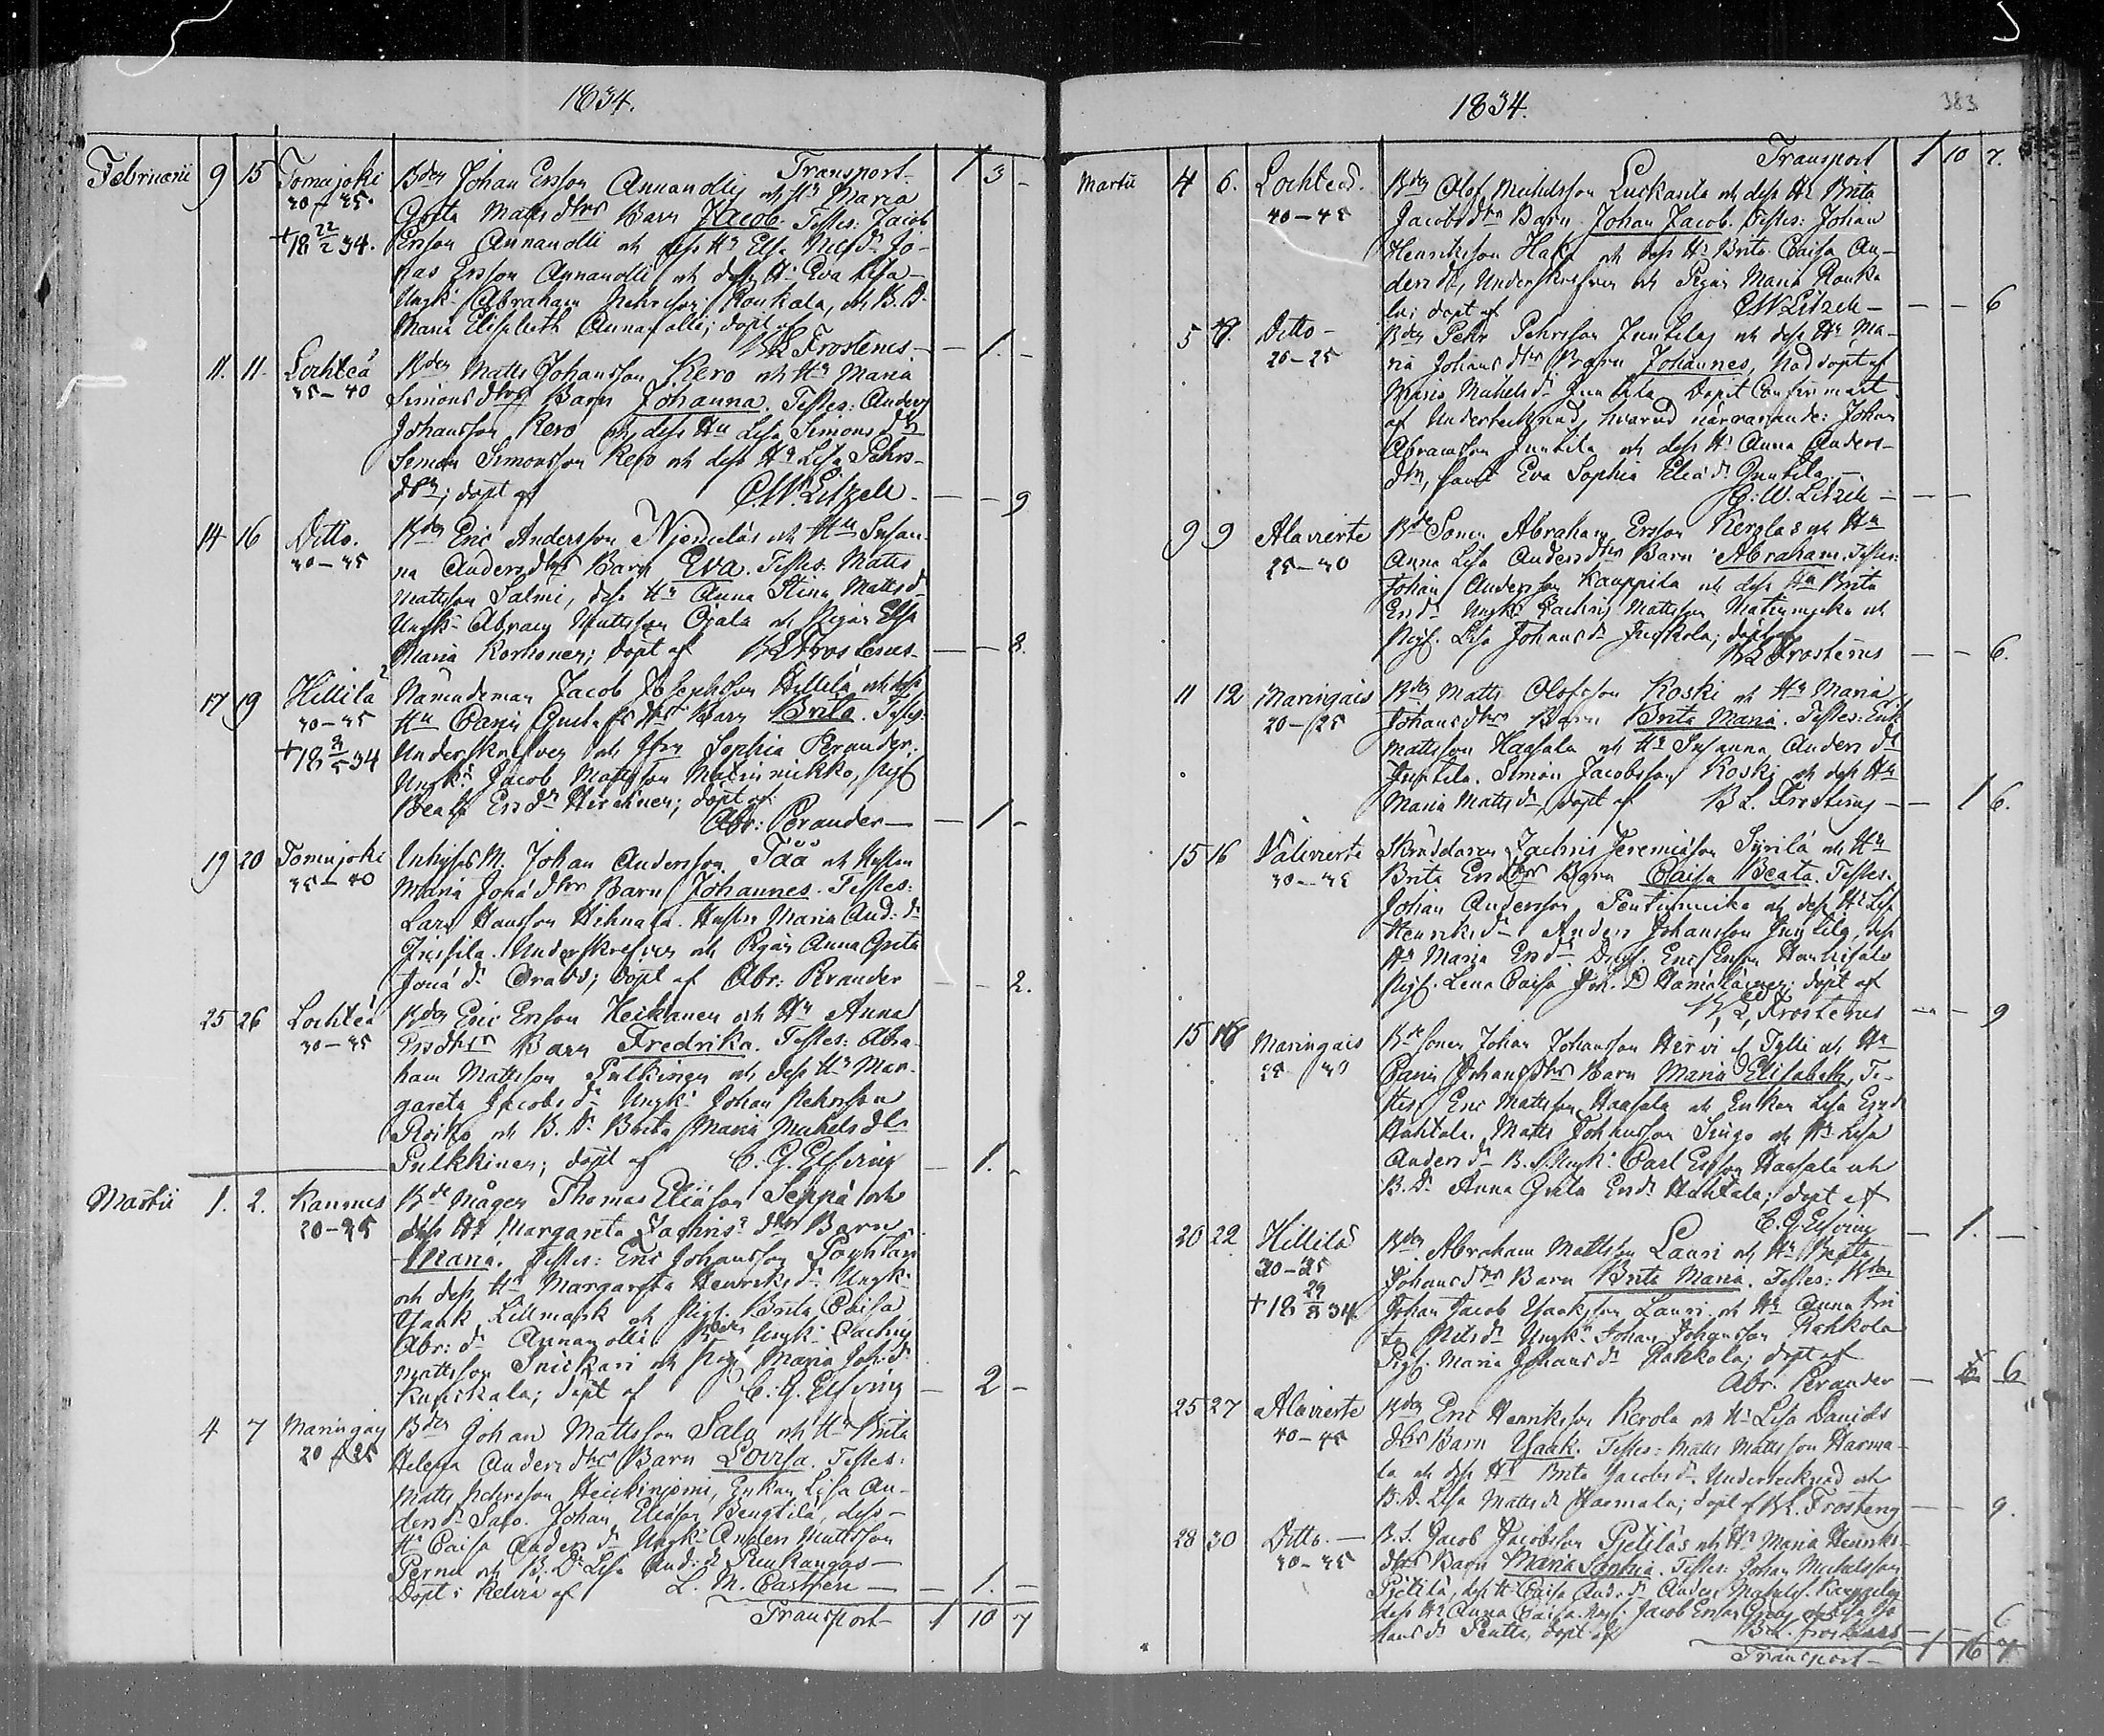 1834.
Transport 1 3 -
Februarii 9 15 Tomujoki Bdn Johan Ersson Annanolli och Hu Maria
30-35. Greta Matts dtrs Barn Jacob. Testes: Jacob
+18 22/2 34. Ersson Annanolli och dess Hu Elsa Nils dr Jo-
nas Ersson Annanolli och dess Hu Eva Lisa
Ungk. Abraham Pehrsson Roukala, och B.D.
Maria Elisabeth Annanolli; döpt af
BL Frosterus - 1. -
11. 11. Lochteå Bdn Matts Johansson Kero och Hu Maria
35-40 Simons dtrs Barn Johanna. Testes: Anders
Johansson Kero och dess Hu Lisa Simons dtr
Simon Simonsson Kero och dess Hu Lisa Pehrs-
dtr; döpt af C.W. Litzele - - 9
14 16 Ditto. Bdn Eric Andersson Njemelä och Hu Susan-
30-35 na Anders dtrs Barn Eva. Testes: Matts
Mattsson Salmi, dess Hu Anna Stina Matts dr
Ungk. Abram Mattsson Ojala och Pigan Elsa
Maria Korhonen; döpt af BL Frosterus - - 8.
17 19 Hillilä Nämndeman Jacob Josephsson Hillilä och dess
30-35 Hu Carin Gustafs dtrs Barn Brita. Testes:
+18 8/5 34 Underskrifven och Jfru Sophia Perander;
Ungk. Jacob Mattsson Matinmickko, Pigf
Beata Ers dr Hirvinen; döpt af
Abr: Perander - 1 -
19 20 Tomujoki Inhyses M. Johan Andersson Tää och Hustru
35-40 Maria Jona dtrs Barn Johannes. Testes:
Lars Hansson Hihnala. Hustru Maria And: dr
Jussila. Underskrefven och Pigan Anna Greta
Jona dr Orava; döpt af Abr: Perander - - 2.
25 26 Lochteå Bdn Eric Ersson Heikanen och Hu Anna
30-35 Ersdtrs Barn Fredrika. Testes: Abra-
ham Mattsson Pulkinen och dess Hu Mar-
gareta Jacobs dr Ungk. Johan Pehrsson
Roiko och B.D. Brita Maria Michels dtr
Pulkkinen; döpt af C.G. Elfving - 1. -
Martii 1. 2. Kannus Bde Mågen Thomas Eliasson Seppä och
20-25 dess Hu Margareta Zachris dtrs Barn
Maria. Testes: Eric Johansson
och dess Hu Margareta Henriks dr Ungk.
Isaak Lillmark och Pigf. Brita Caisa
Abr: dr Annanolli Ungk. Zachris
Mattsson Snickari och Pigf Maria Joh: dr
döpt af C.G. Elfving - 2 -
4 7 Maringais Bdn Johan Mattsson Salo och Hu Brita
20-25 Helena Anders dtrs Barn Lovisa. Testes:
Matts Pehrsson Heickiniemi, Enkan Lisa An-
ders dr Salo. Johan Eliasson Bengtilä, dess
Hu Caisa Anders dr Ungk. Anders Mattsson
Pernu och B.D. Lisa And: dr Puukangas
Döpt i Kelviå af L. M. Castren - 1. -
Transport 1 10 7
1834. 383
Transport 1 10 7.
Martii 4 6. Lochteå. Bdn Olof Michelsson Luckarila och dess Hu Brita
40-45 Jacobs dtrs Barn Johan Jacob. Testes: Johan
Henriksson Haka och dess Hu Brita Caisa An-
ders dr, Underskrefven och Pigan Maria Rouka
la; döpt af C.W. Litzele - - 6
5 9. Ditto - Bdn Pehr Pehrsson Junttila och dess Hu Ma-
20-25 ria Johans dtrs Barn Johannes, Nöddöpt af
Maria Michels dr Junttila Döpt Confirmait
af Undertecknad, hvarvid närvarande: Johan
Abramsson Junttila och dess Hu Anna Anders-
dtr, samt Eva Sophia Elia dr Junttila
C:W. Litzele - - -
9 9 Alavierte Bd Sonen Abraham Ersson Kerola och Hu
25-30 Anna Lisa Anders dtrs Barn Abraham. Testes:
Johan Andersson Kauppila och dess Hu Brita
Ers dr Ungk. Zachris Mattsson och
Pigf. Lisa Johans dr Juckola; döpt af
BL Frosterus - - 6.
11 12 Maringais Bdn Matts Olofsson Koski och Hu Maria
20-25 Johans dtrs Barn Brita Maria. Testes: Erik
Mattsson Haasala och Hu Susanna Anders dr
Junttila. Simon Jacobsson Koski och dess Hu
Maria Matts dr, döpt af BL. Frosterus - 1 6.
15 16 Välivierte Skräddaren Zachris Jeremiasson Syrilä och Hu
30-35 Brita Ersdtrs Barn Caisa Beata. Testes.
Johan Andersson Penttimicko och dess Hu Lisa
Henriks dr Anders Johansson Junttila, dess
Hu Maria Ers dr Drngf. Eric Ersson Hanhisalo
Pigf. Lena Caisa Joh. D Hämäläinen; döpt af
BL Frosterus - - 9
15 16 Maringais Bde Sonen Johan Johansson Hirvi el. Tylli och Hu
25 30 Carin Johans dtrs Barn Maria Elisabeth, Te-
stes Eric Mattsson Haasala och Enkan Lisa Ers dr
Hahtala. Matts Johansson Siugo och Hu Lisa
Anders dr B.S. Ungk. Carl Ersson Haasala och
B.D. Anna Greta Ers dr Hahtala; döpt af
C.G. Elfving - 1. -
20 22 Hillilä Bdn Abraham Mattsson Lauri och Hu Beata
30-35 Johans dtrs Barn Brita Maria. Testes: Bdn
+18 29/8 34 Johan Jacob Isaksson Lauri och Hu Anna Bri
ta Nils dr Ungk. Johan Johansson Rahkola
Pigf. Maria Johans dr Rahkola; döpt af
Abr. Perander - 6 6
25 27 Alavierte Bdn Eric Henriksson Kerola och Hu Lisa Davids
40-45 dtrs Barn Isaak. Testes: Matts Mattsson Harma-
la och dess Hu Brita Jacobs dr Undertecknad och
B.D. Lisa Matts dr Harmala; döpt af BL. Frosterus - - 9.
28 30 Ditto. - B.S. Jacob Jacobsson Pjetilä och Hu Maria Henriks
30-35 dtrs Barn Maria Sophia. Testes: Johan Michelsson
Pjetilä, dess Hu Caisa And: dr Anders Kauppila
dess Hu Anna Caisa. Ungk. Jacob Ersson och Lisa Jo
hans dr Pentti, döpt af BL. Frosterus - - 6
Transport 1 16 7